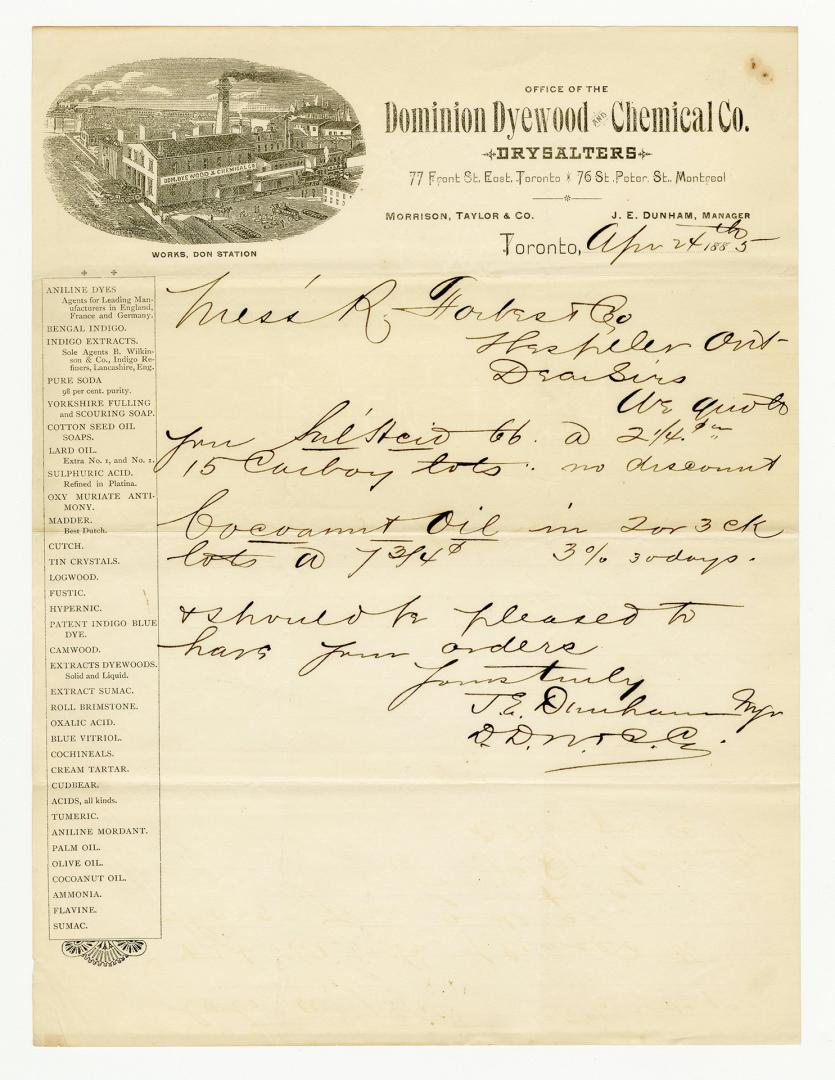 OFFICE OF THE
Dominion Dyewood AND Chemical Co.
DRYSALTERS
77 Front St. East, Toronto * 76 St. Peter St. Montreal
MORRISON, TAYLOR & CO. J. E. DUNHAM, MANAGER
DOM. DYEWOOD & CHEMICAL CO
WORKS, DON STATION
Toronto, Apr 24th 1885
Mess R. Forbes & Co
Hespeler Ont
Dear Sirs
We quote
you Sul Acid 66. @ 2 1/4.
15 Carboy lots no discount
Cocoanut Oil in 2 or 3 ck
lots @ 7 3/4¢ 3% 30 days.
& should be pleased to
have your orders
Yours truly
J. E. Dunham Mgr
D. D. W. & C. Co.
ANILINE DYES
Agents for Leading Man-
ufacturers in England,
France and Germany.
BENGAL INDIGO.
INDIGO EXTRACTS.
Sole Agents B. Wilkin-
son & Co., Indigo Re-
finers, Lancashire, Eng.
PURE SODA
98 per cent. purity.
YORKSHIRE FULLING
and SCOURING SOAP.
COTTON SEED OIL
SOAPS.
LARD OIL.
Extra No. 1, and No. 1.
SULPHURIC ACID.
Refined in Platina.
OXY MURIATE ANTI-
MONY.
MADDER.
Best Dutch.
CUTCH.
TIN CRYSTALS.
LOGWOOD.
FUSTIC.
HYPERNIC.
PATENT INDIGO BLUE
DYE.
CAMWOOD.
EXTRACTS DYEWOODS.
Solid and Liquid.
EXTRACT SUMAC.
ROLL BRIMSTONE.
OXALIC ACID.
BLUE VITRIOL.
COCHINEALS.
CREAM TARTAR.
CUDBEAR.
ACIDS, all kinds.
TUMERIC.
ANILINE MORDANT.
PALM OIL.
OLIVE OIL.
COCOANUT OIL.
AMMONIA.
FLAVINE.
SUMAC.